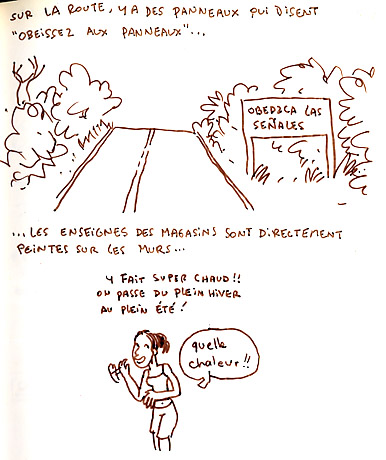 SUR LA ROUTE, Y A DES PANNEAUX QUI DISENT
"OBEISSEZ AUX PANNEAUX"...
OBEDZCA LAS
SEÑALES
...LES ENSEIGNES DES MAGASINS SONT DIRECTEMENT
PEINTES SUR LES MURS...
Y FAIT SUPER CHAUD!!
ON PASSE DU PLEIN HIVER
AU PLEIN ÉTÉ!
quelle
chaleur!!